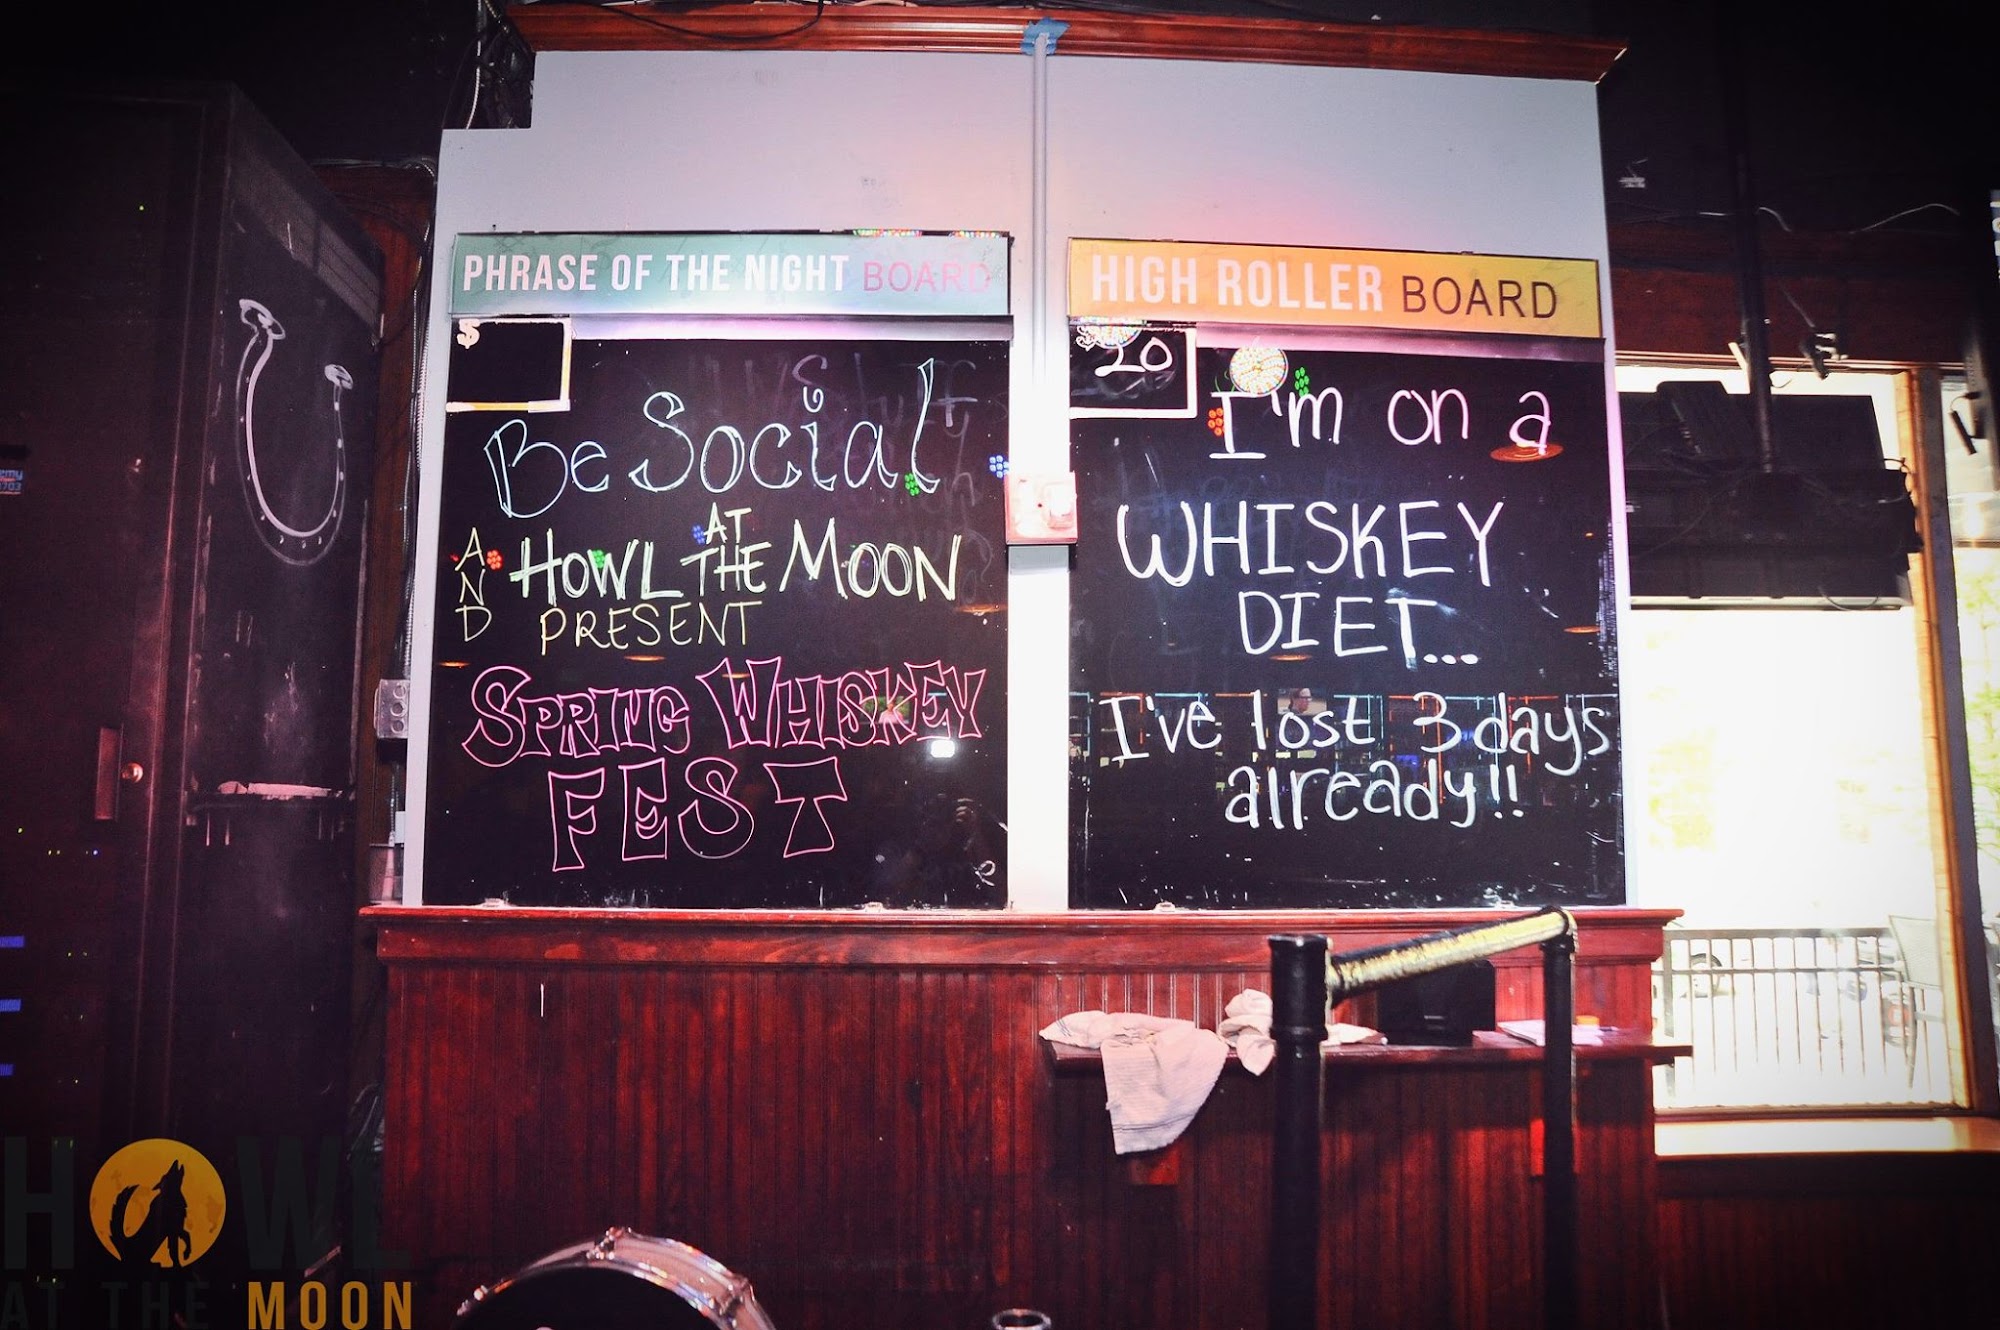 PHRASE OF THE NIGHT BOARD
$
Be Social
AND
HOWL AT THE MOON
PRESENT
SPRING WHISKEY
FEST
HIGH ROLLER BOARD
$
20
I'm on a
WHISKEY
DIET...
I've lost 3 days
already!!
HOWL
AT THE MOON